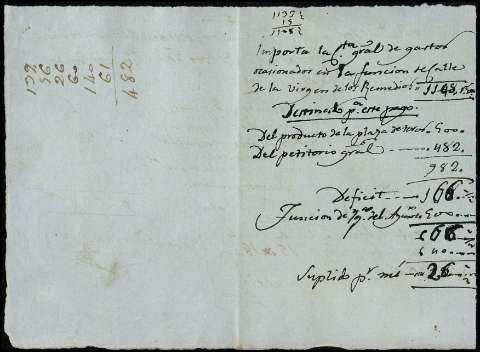 139
56
26
60
140
61
482
1133½
15
1148½
Importa la Cta gral de gastos
ocasionados en la funcion de Calle
de la Virgen de los Remedios 1148½
Destinado pa este pago.
Del producto de la plaza de toros. 500..
Del petitorio gral 482.
982.
Deficit 166½
Funcion de 500..
666½
640..
Suplido pr mí 26½